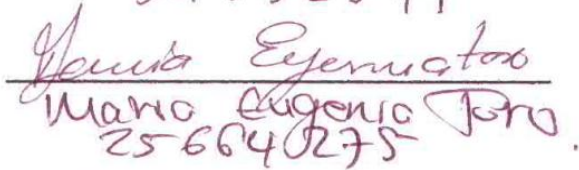 Maria Eugenia Toro
Maria Eugenia Toro.
256640275